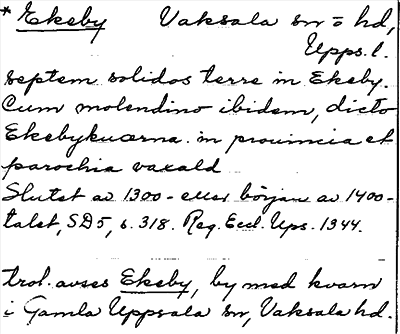 * Ekeby Vaksala sn o hd,
Upps. l.
septem solidos terre in Ekeby.
Cum molendino ibidem, dicto
Ekebykuærna in prouincia et
parochia vaxald
Slutet av 1300- eller början av 1400-
talet, SD 5, s. 318. Reg. Eccl. Ups. 1344.
trol. avses Ekeby, by med kvarn
i Gamla Uppsala sn, Vaksala hd.